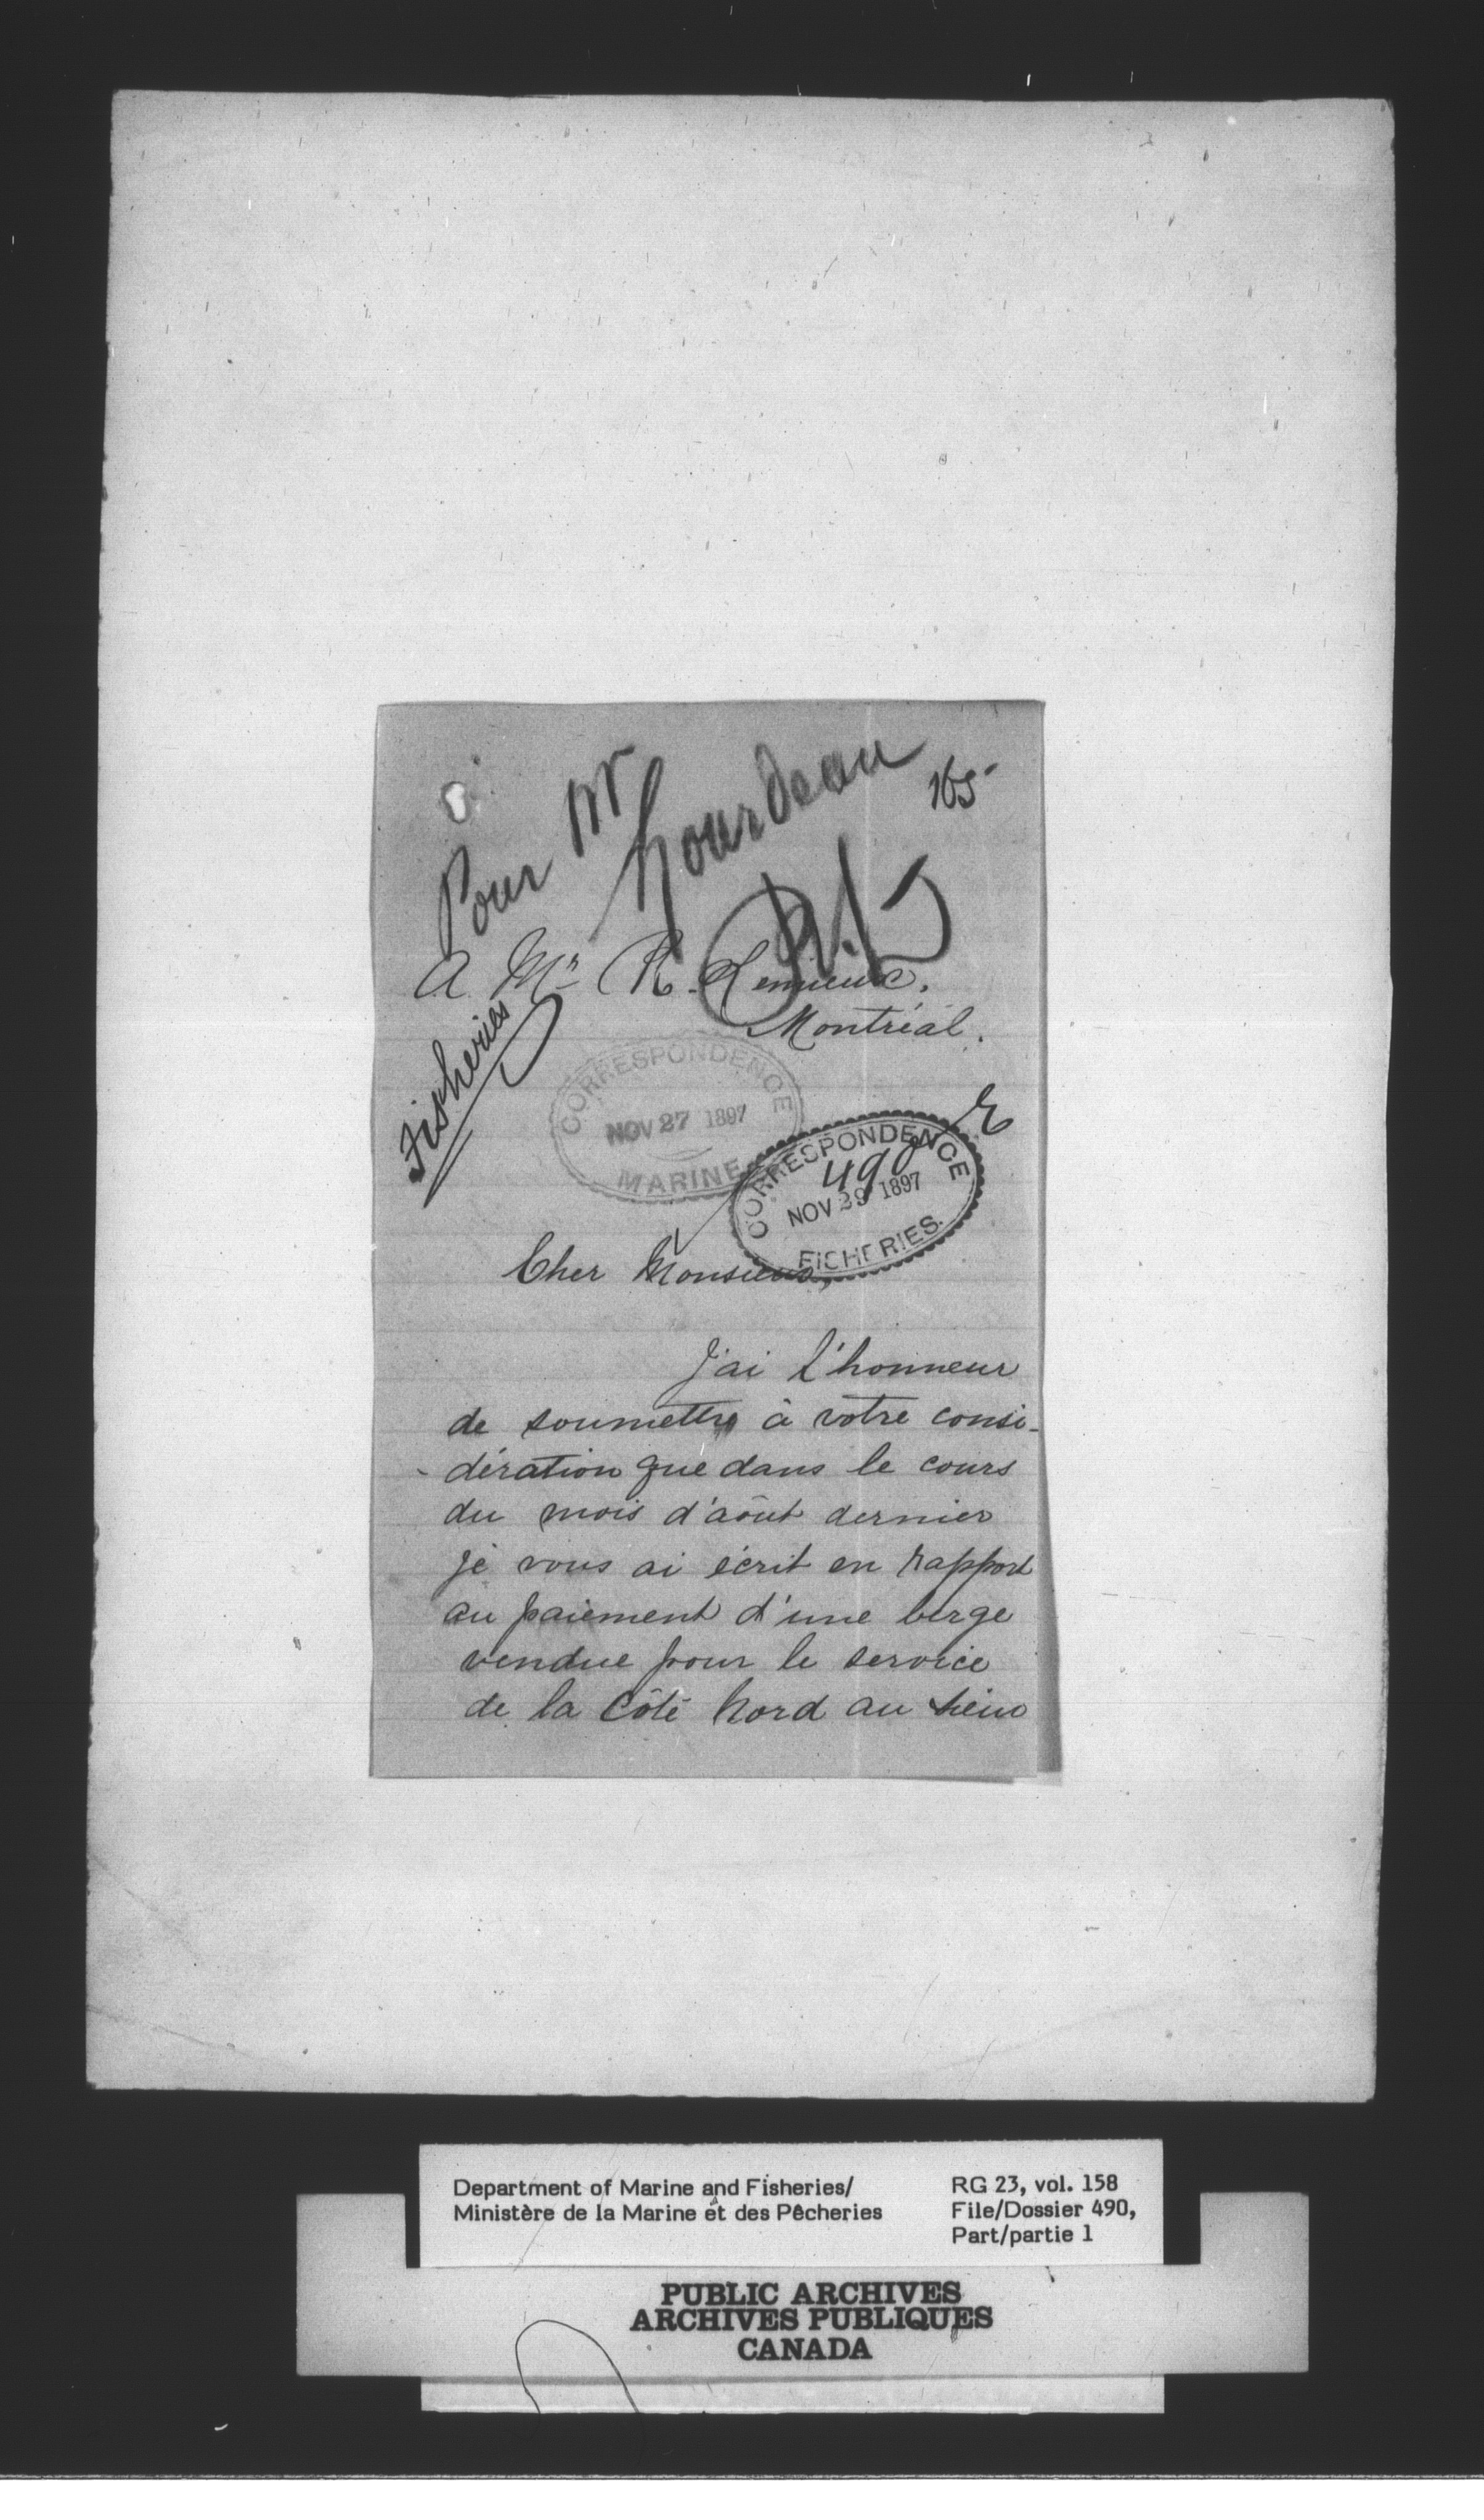 Pour Mr
Gourdeau
165
A Mr R. Lemieux.
Montréal.
Fisheries
CORRESPONDENCE
NOV 27 1897
MARINE
CORRESPONDENCE
490
NOV 29 1897
FISHERIES.
Cher Monsieur,
J'ai l'honneur
de soumettre à votre consi-
-dération que dans le cours
du mois d'août dernier
je vous ai écrit en rapport
au paiement d'une berge
vendue pour le service
de la Côte Nord au
Department of Marine and Fisheries/
Ministère de la Marine et des Pêcheries
RG 23, vol. 158
File/Dossier 490,
Part/partie 1
PUBLIC ARCHIVES
ARCHIVES PUBLIQUES
CANADA